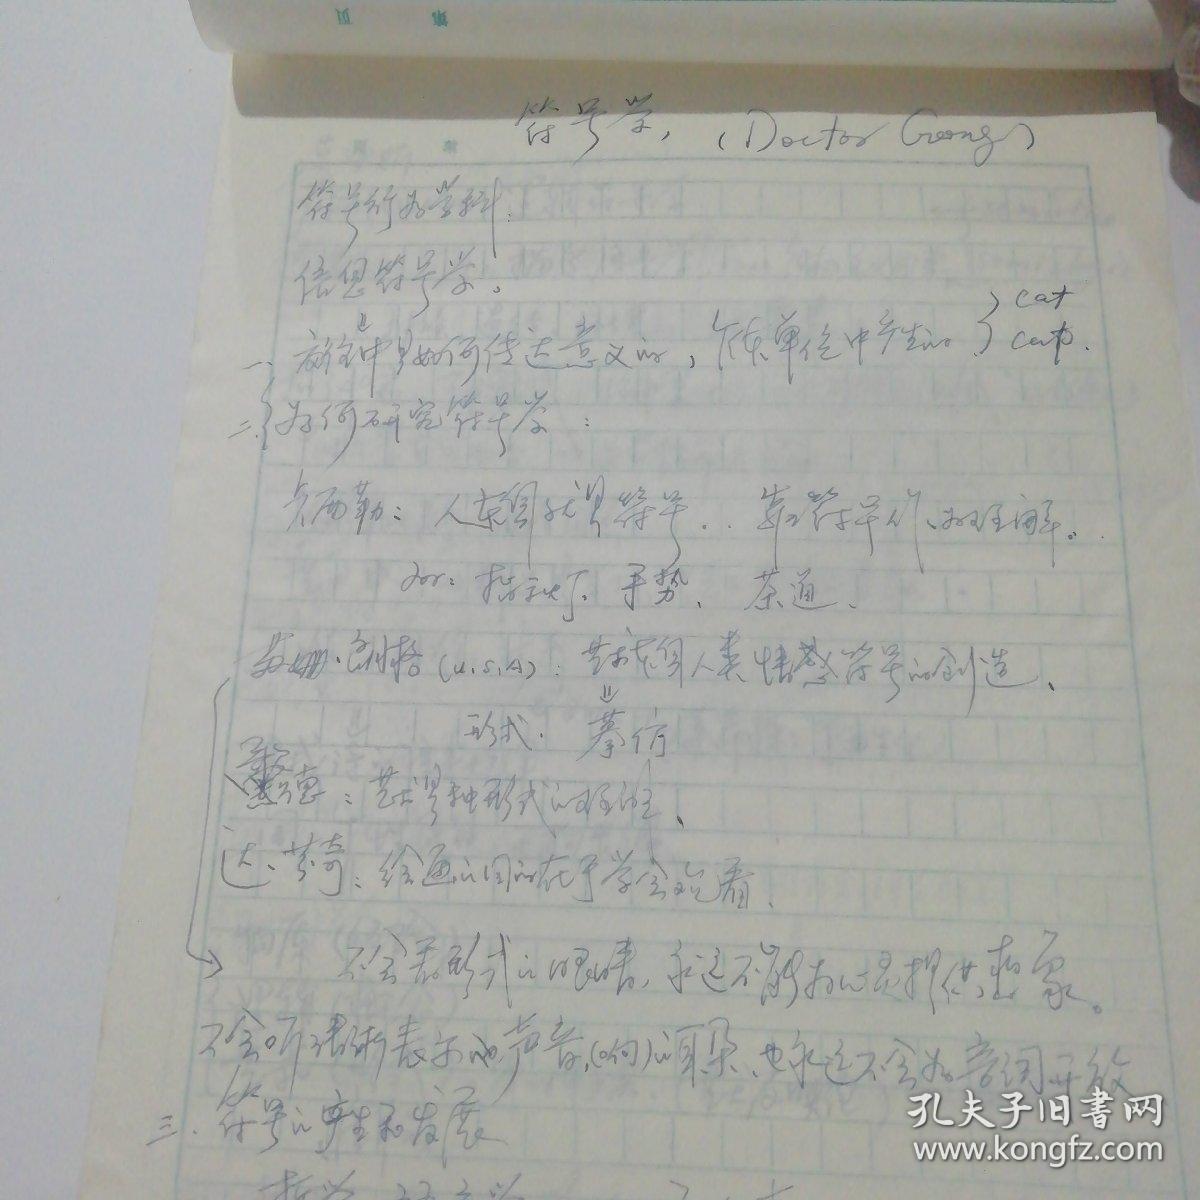 第 页
符号学, (Doctor Gong)
符号行为学科.
信息符号学。
一. 中是如何传达意义的, 个体单位中产生的 { cat
cap.
二. 为何研究符号学:
卡西勒: 人类就是符号.. 靠符号 理解。
如: 指示灯、手势、茶道、
苏姗·朗格(U.S.A): 艺术是人类情感符号的创造、
形式. 摹仿
: 艺术是种形式的
达·芬奇: 绘画的目的在于学会观看.
不会看形式的眼睛, 永远不能为心灵提供想象。
不会听 声音(响)的耳朵、也永远不会为音调开放
三. 符号的产生和发展
哲学
孔夫子旧书网
www.kongfz.com